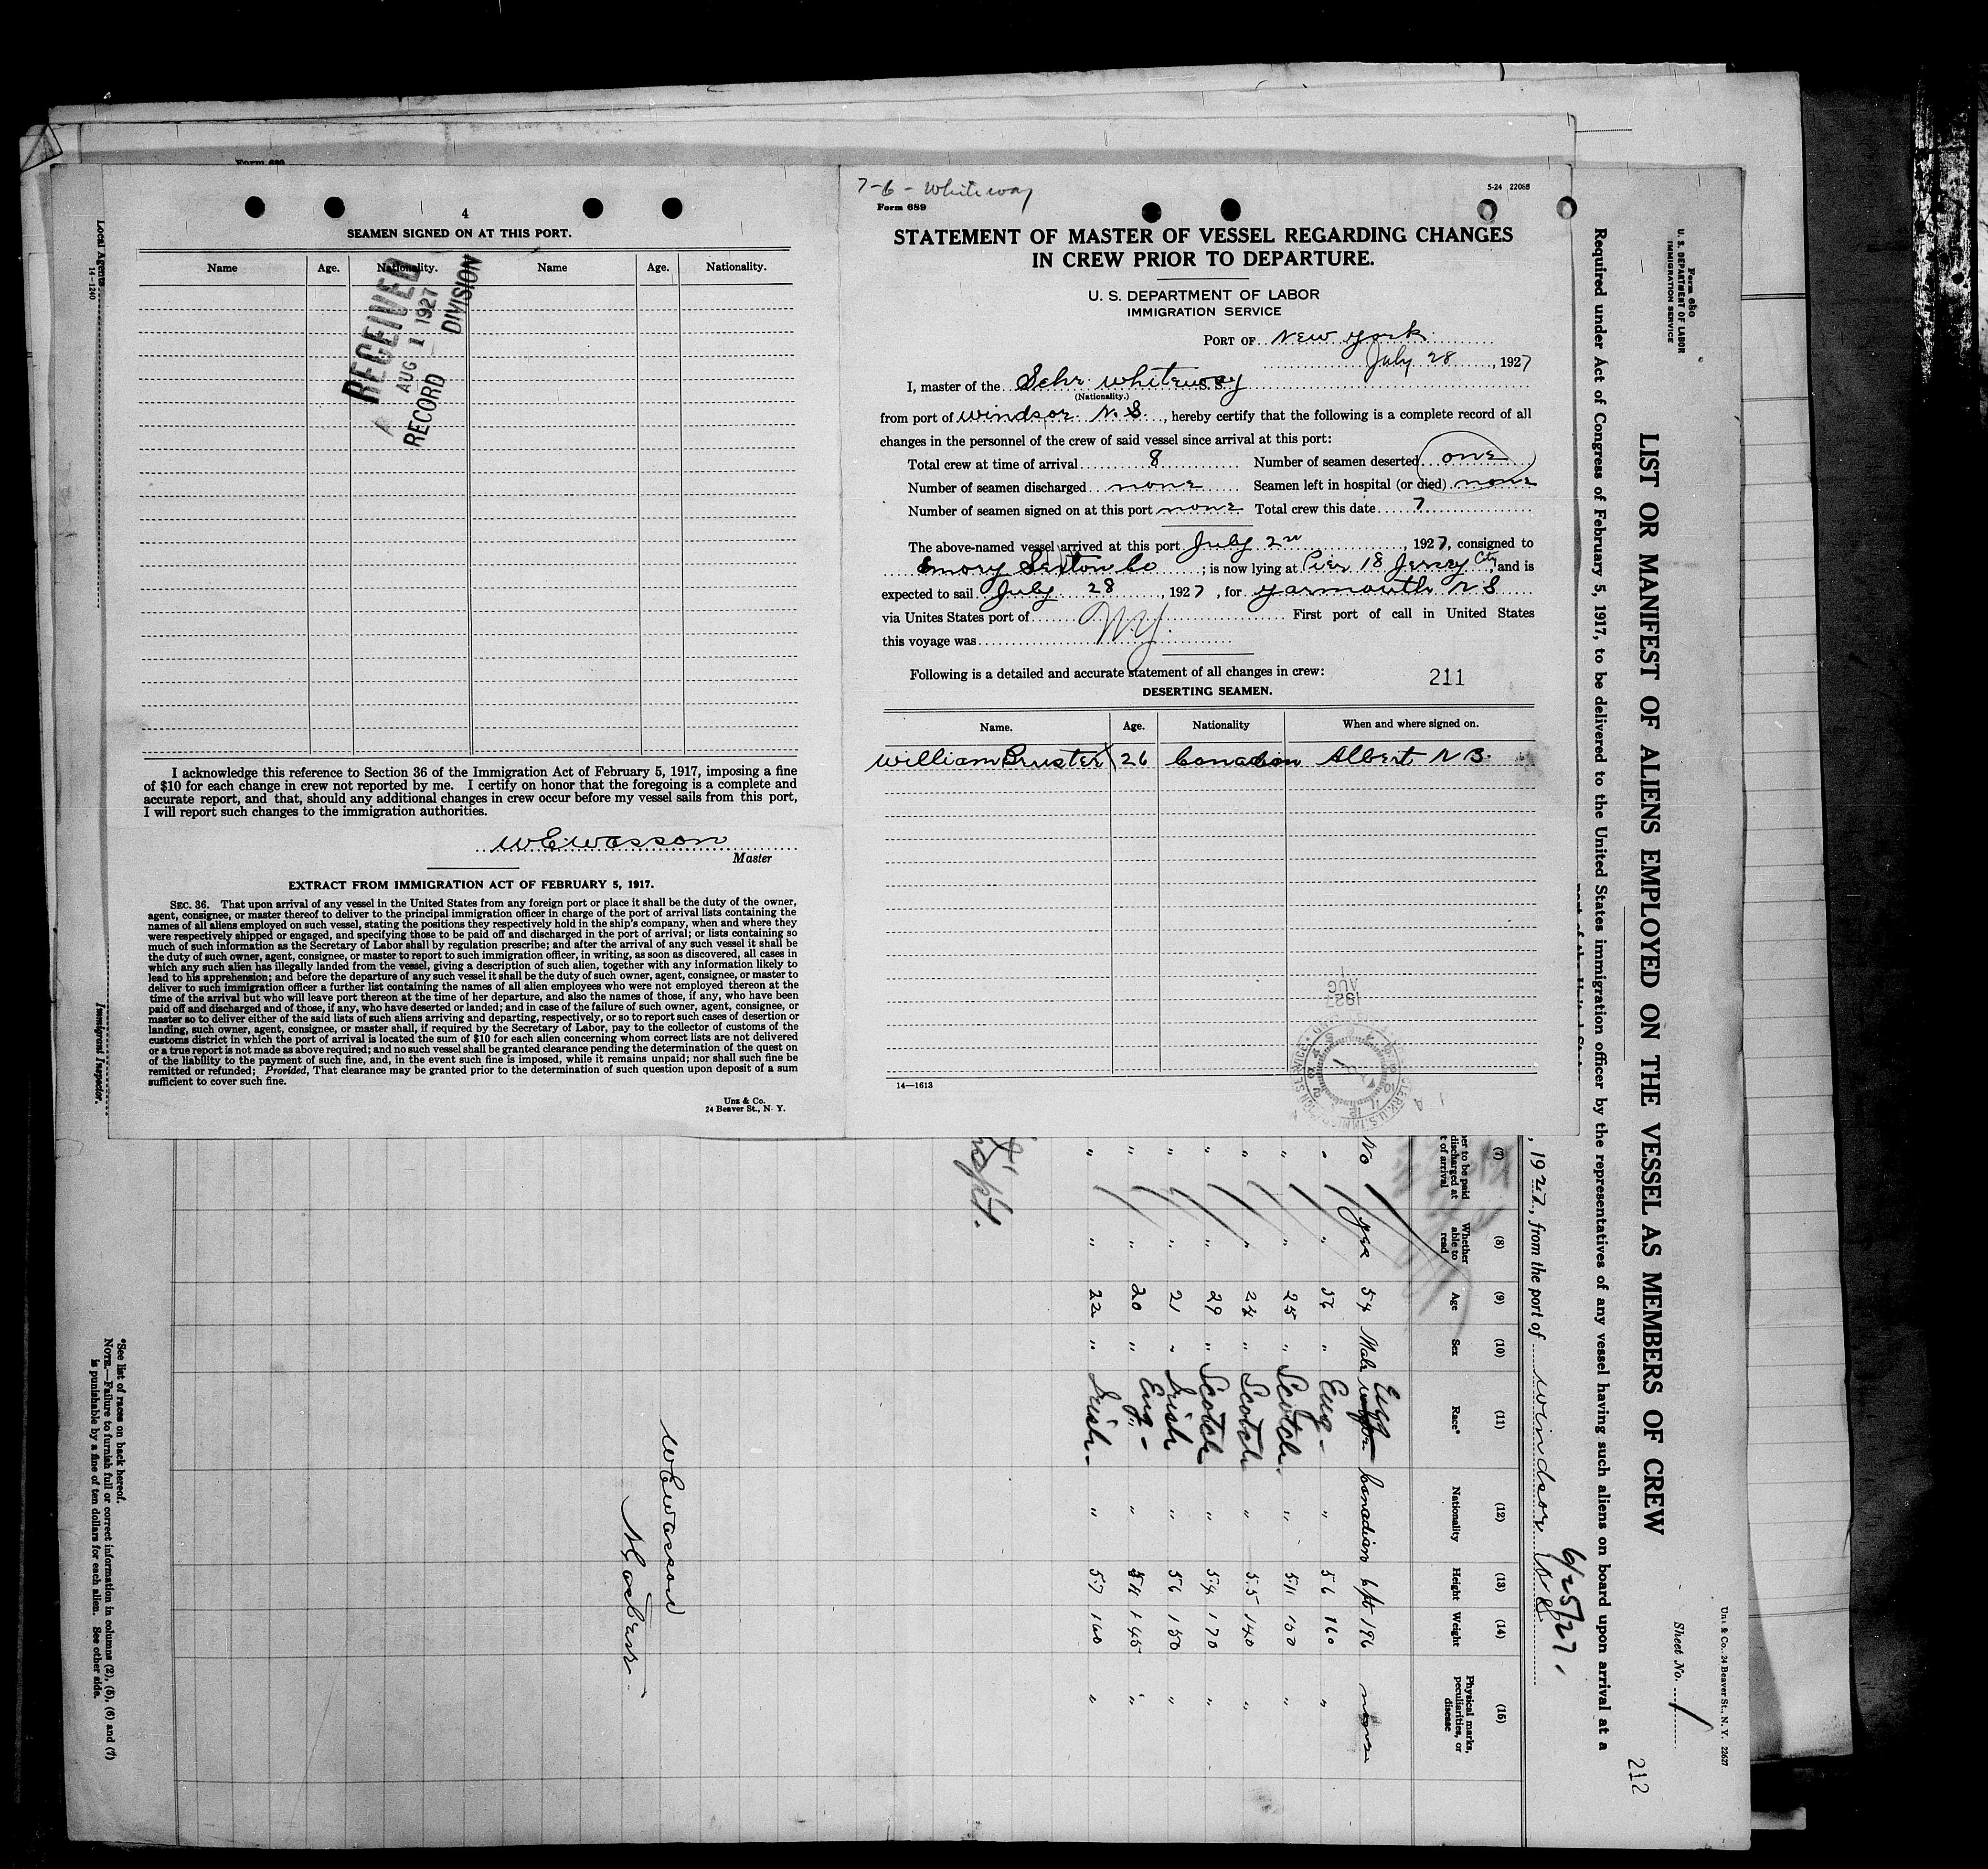 Form 680
4
SEAMEN SIGNED ON AT THIS PORT.
Name Age. Nationality. Name Age. Nationality.
RECEIVED
AUG 1 1927
RECORD DIVISION
I acknowledge this reference to Section 36 of the Immigration Act of February 5, 1917, imposing a fine
of $10 for each change in crew not reported by me. I certify on honor that the foregoing is a complete and
accurate report, and that, should any additional changes in crew occur before my vessel sails from this port,
I will report such changes to the immigration authorities.
W E Wasson
Master
EXTRACT FROM IMMIGRATION ACT OF FEBRUARY 5, 1917.
SEC. 36. That upon arrival of any vessel in the United States from any foreign port or place it shall be the duty of the owner,
agent, consignee, or master thereof to deliver to the principal immigration officer in charge of the port of arrival lists containing the
names of all aliens employed on such vessel, stating the positions they respectively hold in the ship's company, when and where they
were respectively shipped or engaged, and specifying those to be paid off and discharged in the port of arrival; or lists containing so
much of such information as the Secretary of Labor shall by regulation prescribe; and after the arrival of any such vessel it shall be
the duty of such owner, agent, consignee, or master to report to such immigration officer, in writing, as soon as discovered, all cases in
which any such alien has illegally landed from the vessel, giving a description of such alien, together with any information likely to
lead to his apprehension; and before the departure of any such vessel it shall be the duty of such owner, agent, consignee, or master to
deliver to such immigration officer a further list containing the names of all alien employees who were not employed thereon at the
time of the arrival but who will leave port thereon at the time of her departure, and also the names of those, if any, who have been
paid off and discharged and of those, if any, who have deserted or landed; and in case of the failure of such owner, agent, consignee, or
master so to deliver either of the said lists of such aliens arriving and departing, respectively, or so to report such cases of desertion or
landing, such owner, agent, consignee, or master shall, if required by the Secretary of Labor, pay to the collector of customs of the
customs district in which the port of arrival is located the sum of $10 for each alien concerning whom correct lists are not delivered
or a true report is not made as above required; and no such vessel shall be granted clearance pending the determination of the quest on
of the liability to the payment of such fine, and, in the event such fine is imposed, while it remains unpaid; nor shall such fine be
remitted or refunded; Provided, That clearance may be granted prior to the determination of such question upon deposit of a sum
sufficient to cover such fine.
Unz & Co.
24 Beaver St., N. Y.
Local Agents
14-1240
Immigrant Inspector.
7-6 - Whiteway
5-24 22088
Form 689
STATEMENT OF MASTER OF VESSEL REGARDING CHANGES
IN CREW PRIOR TO DEPARTURE.
U. S. DEPARTMENT OF LABOR
IMMIGRATION SERVICE
PORT OF New York
July 28, 1927
I, master of the Schr Whiteway S.S.
(Nationality.)
from port of Windsor N.S., hereby certify that the following is a complete record of all
changes in the personnel of the crew of said vessel since arrival at this port:
Total crew at time of arrival 8 Number of seamen deserted one
Number of seamen discharged none Seamen left in hospital (or died) none
Number of seamen signed on at this port none Total crew this date 7
The above-named vessel arrived at this port July 2nd, 1927, consigned to
Emory Sexton Co; is now lying at Pier 18 Jersey Cty, and is
expected to sail July 28, 1927, for Yarmouth N S
via Unites States port of First port of call in United States
this voyage was N.Y.
Following is a detailed and accurate statement of all changes in crew:
211
DESERTING SEAMEN.
Name. Age. Nationality When and where signed on.
William Bruster X 26 Canadian Albert N B.
1927
AUG
14—1613
Form 680
U. S. DEPARTMENT OF LABOR
IMMIGRATION SERVICE
Unz & Co., 24 Beaver St., N. Y. 22627
Sheet No. 1
212
LIST OR MANIFEST OF ALIENS EMPLOYED ON THE VESSEL AS MEMBERS OF CREW
Required under Act of Congress of February 5, 1917, to be delivered to the United States immigration officer by the representatives of any vessel having such aliens on board upon arrival at a
6/25/27.
, 1927, from the port of Windsor N S
(7) (8) (9) (10) (11) (12) (13) (14) (15)
her to be paid discharged at t of arrival Whether able to read Age Sex Race* Nationality Height Weight Physical marks, peculiarities, or disease
No yes 54 Male Eng Canadian 6ft 196 none
" " 56 " Eng - " 5 6 160 "
" " 25 " Scotch " 5 11 150 "
" " 24 " Scotch " 5.5 140 "
" " 29 " Scotch " 5.4 170 "
" " 21 " Irish " 5 6 150 "
" " 20 " Eng - " 5 11 145 "
" " 22 " Irish - " 5.7 160 "
W E Wasson
*See list of races on back hereof.
NOTE.—Failure to furnish full or correct information in columns (2), (5), (6) and (7)
is punishable by a fine of ten dollars for each alien. See other side.